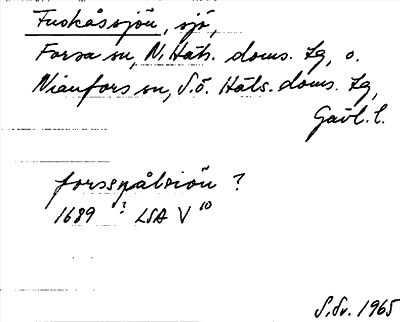 Fuokåssjön, sjö,
Forsa sn, N. Häls. doms. tg, o.
Nianfors sn, S.ö. Häls. doms. tg,
Gävl. l.
forsspålsiön ?
1689 ? LSA V 10
S.dv. 1965